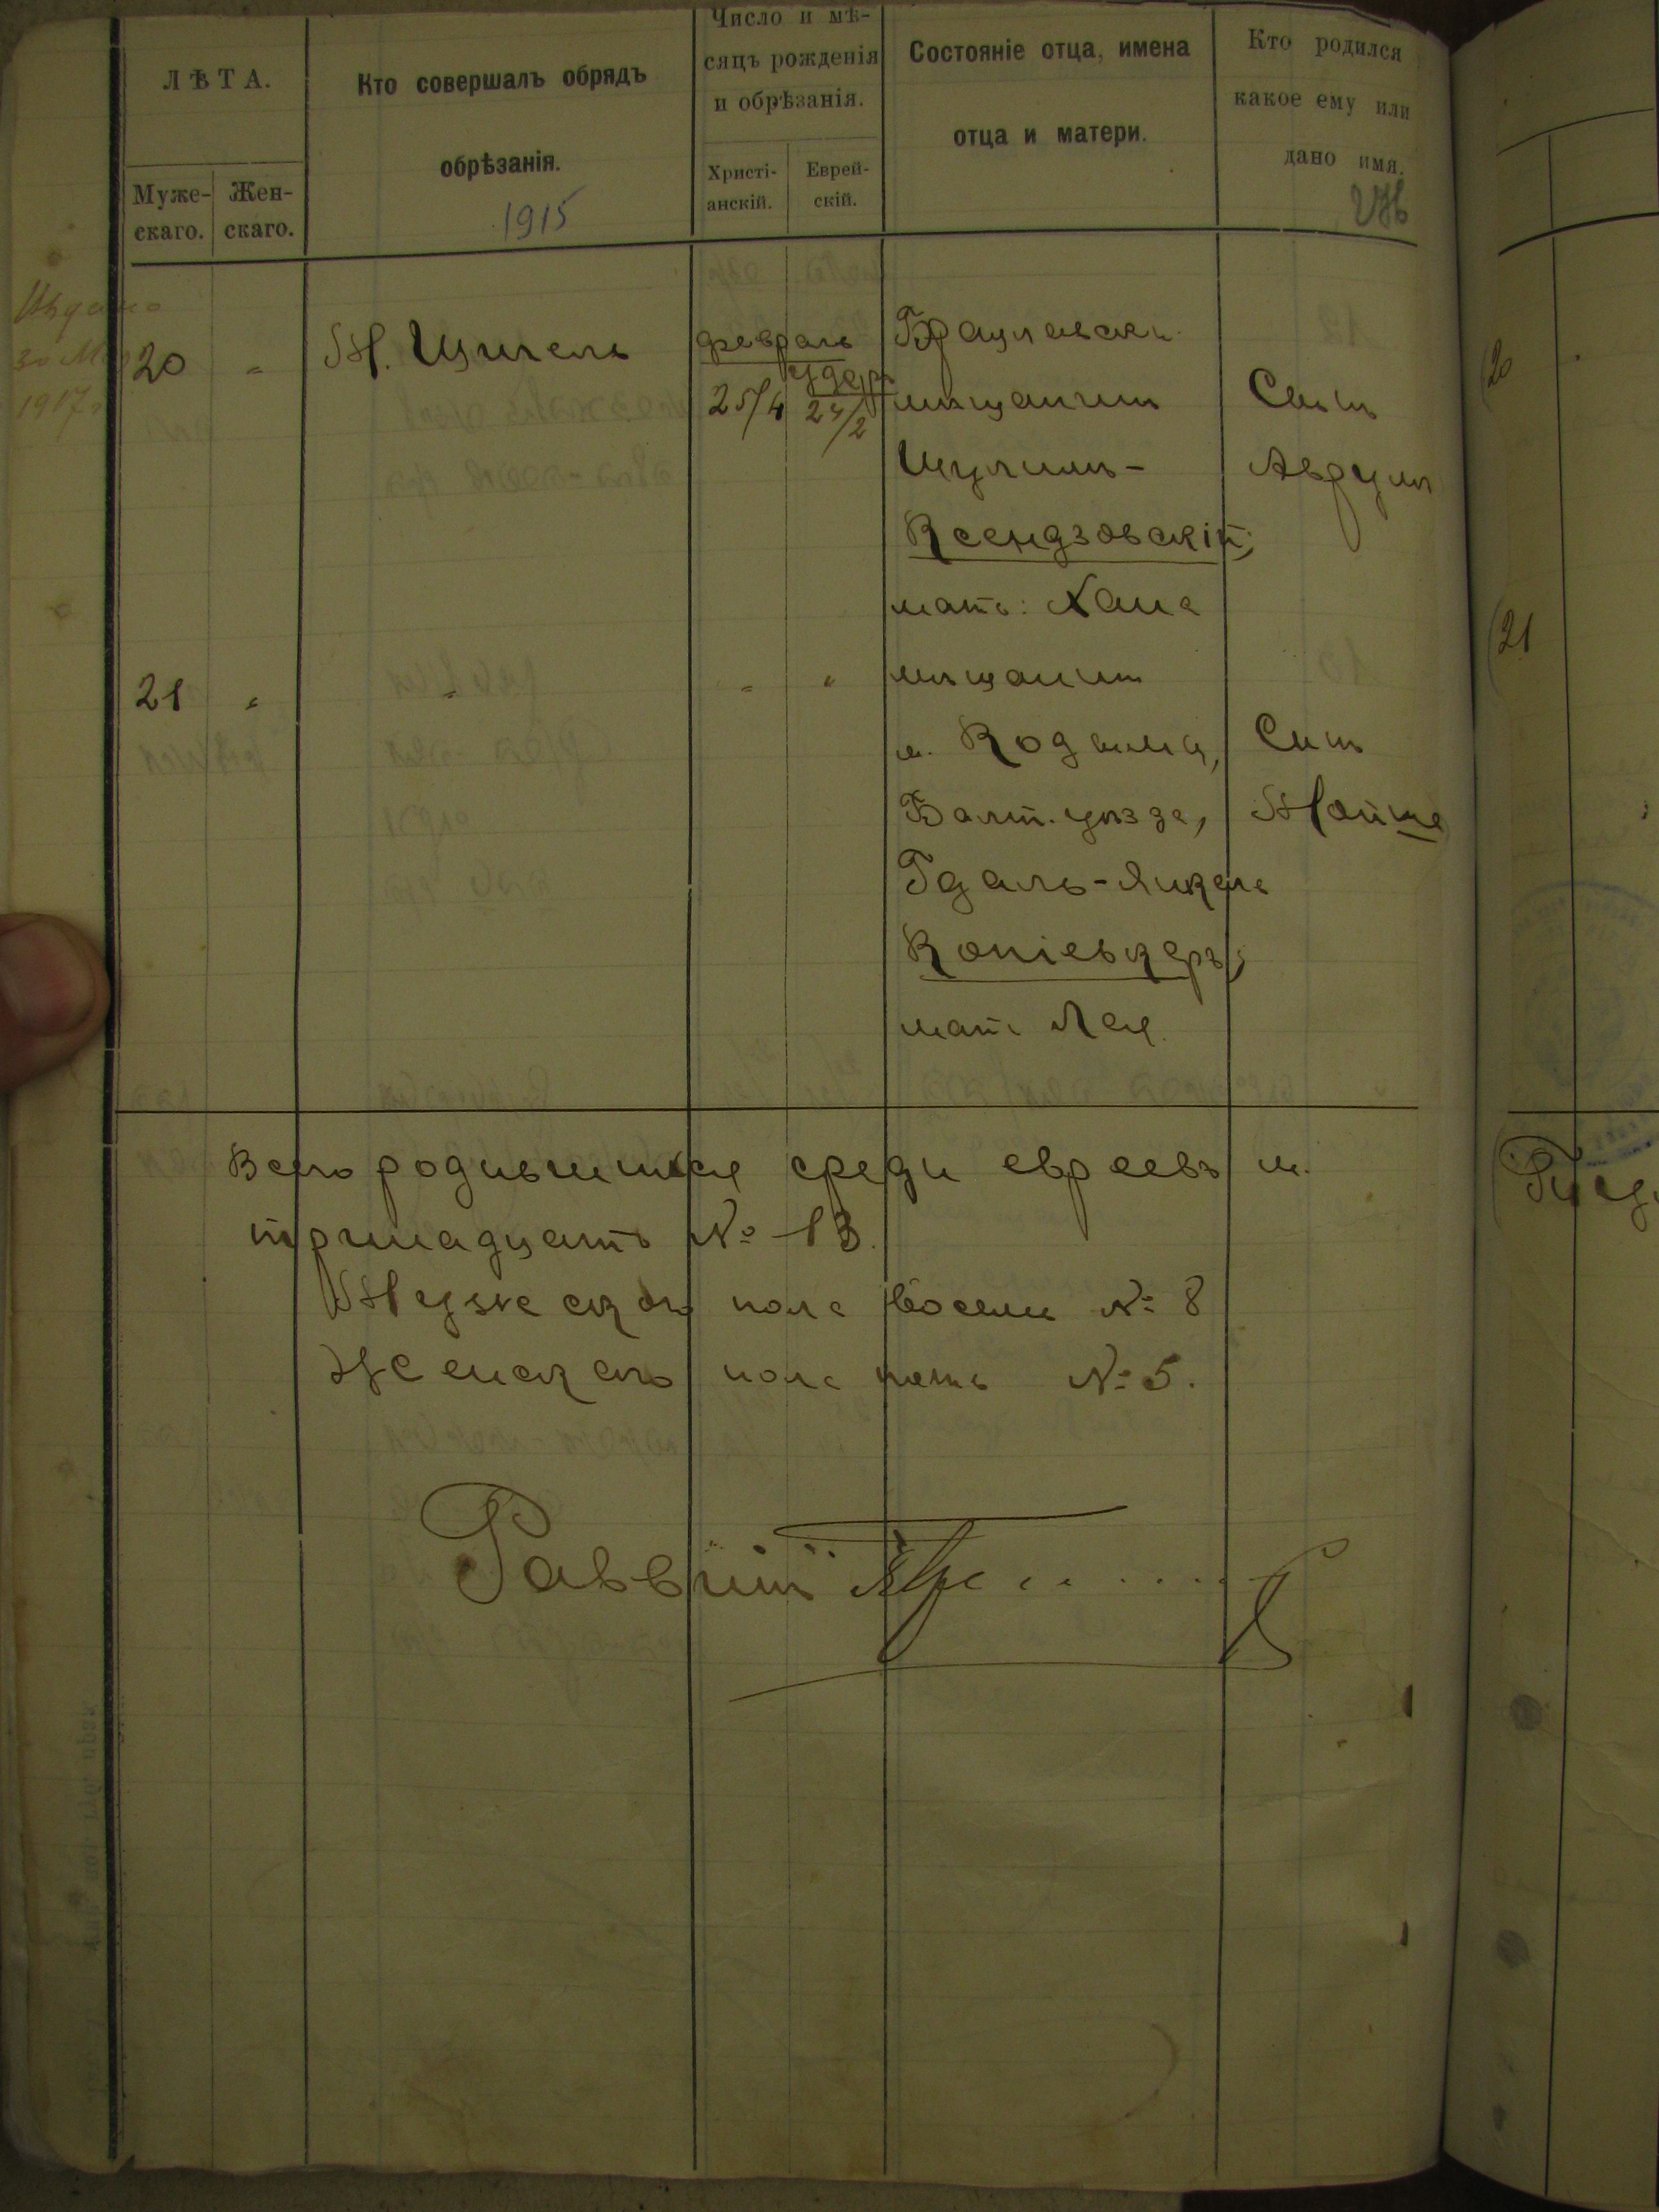 ЛѢТА.
Муже-
скаго.
Жен-
скаго.
Кто совершалъ обрядъ
обрѣзанія.
1915
Число и мѣ-
сяцъ рожденія
и обрѣзанія.
Христі-
анскій.
Еврей-
скій.
Состояніе отца, имена
отца и матери.
Кто родился
какое ему или
дано имя.
30
1917
20 "
М.
февраль
25/4
Брацлавскій
мѣщанинъ
Шулимъ-
Ксендзовскій;
мать: Хана
Сынъ
Аврумъ
21 " " " "
мѣщанинъ
м. Кодыма,
Балт. уѣзда,
Гдаль-Янкель
Копіевкеръ;
мать Лея.
Сынъ
Мойше
Всего родившихся среди евреевъ м.
тринадцать № 13.
Мужескаго пола восемь № 8
Женскаго пола пять № 5.
Раввинъ
20
21